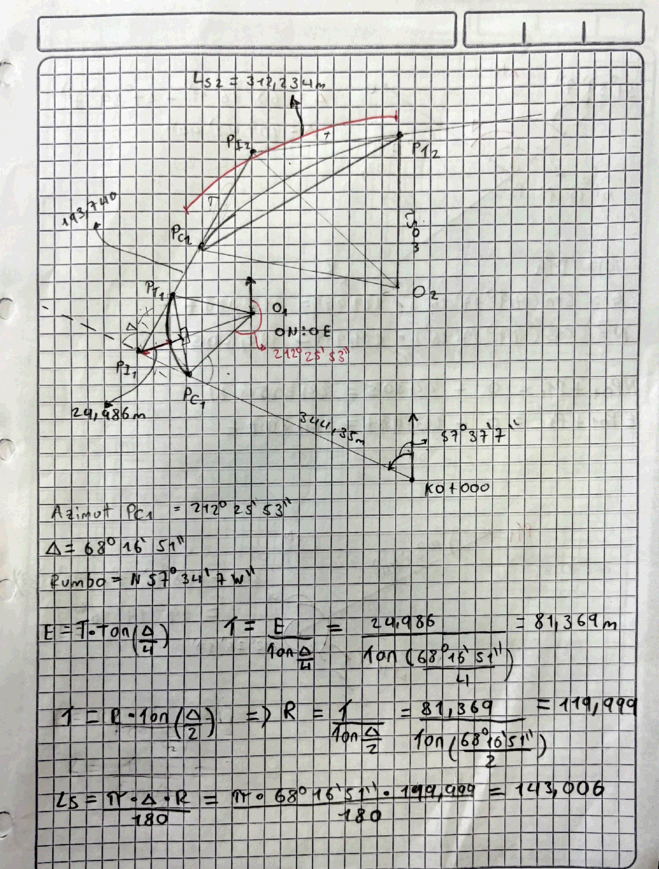 Ls2 = 312,234m
PI2
PT2
T
T
193,740
PC2
503
PT1
O1
O2
ON:OE
Δ
212° 25' 53"
PI1
PC1
24,986m
344,35m
57° 37' 7"
K0+000
Azimut PC1 = 212° 25' 53"
Δ= 68° 16' 51"
Rumbo = N 57° 34' 7 W"
E = T·Tan(Δ/4) T = E/Tan Δ/4 = 24,986/Tan(68°16'51"/4) = 81,369m
T = R·Tan(Δ/2) => R = T/Tan Δ/2 = 81,369/Tan(68°16'51"/2) = 119,999
Ls = π·Δ·R/180 = π· 68° 16' 51"· 199,999/180 = 143,006